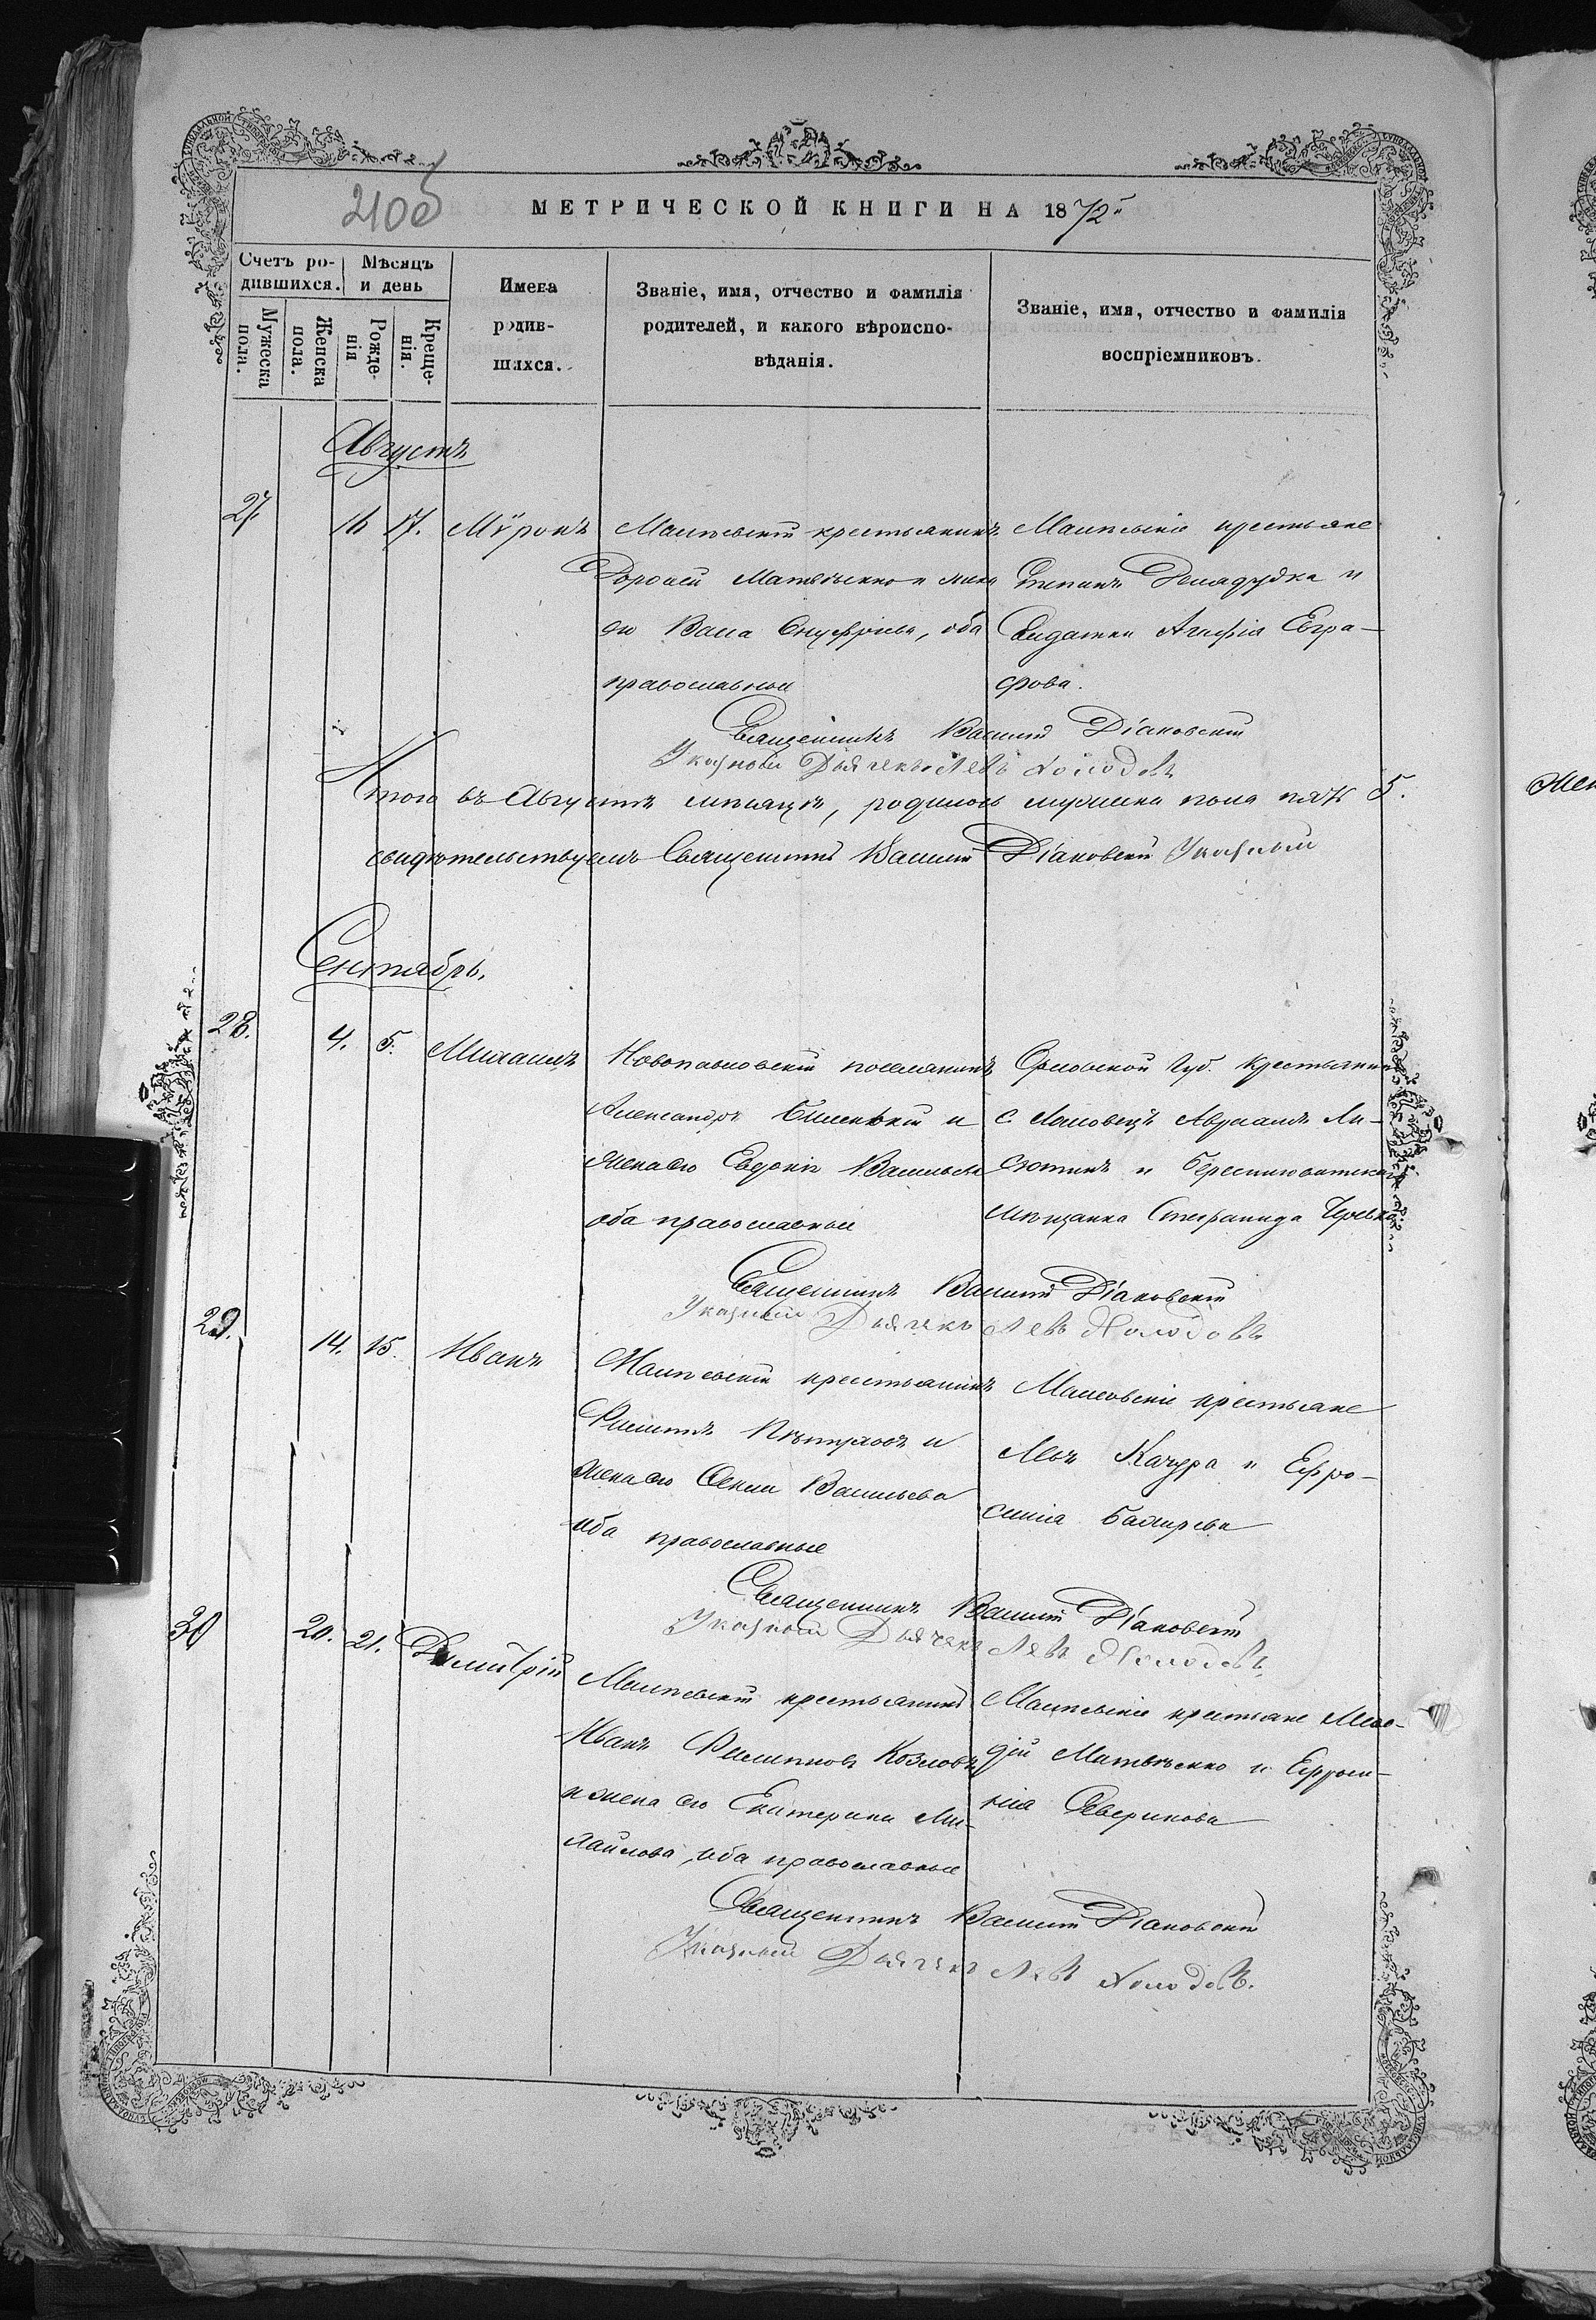 210об
МЕТРИЧЕСКОЙ КНИГИ НА 1872й
Счетъ родившихся.
Мужеска пола.
Женска пола.
Мѣсяцъ и день
Рожденія
Крещенія.
Имена родившихся.
Званіе, имя, отчество и фамилія родителей, и какого вѣроисповѣданія.
Званіе, имя, отчество и фамилія воспріемниковъ.
Августъ
27 16 17. Мѵронъ
крестьянинъ
Дорофей Матвѣенко и жена
его Васса Онуфріева, оба
православные
крестьяне
Степанъ и
Солдатка Агафія Евгра-
фова.
Священникъ Василій Діаковскій
Указный Дьячекъ Левъ Холодовъ
Итого въ Августѣ мѣсяцѣ, родилось мужеска пола пять 5.
свидѣтельствуемъ Священникъ Василій Діаковскій Указный
Сентябрь.
28. 4. 5. Михаилъ
Новопавловскій поселянинъ
Александръ и
жена его Евдокія Васильева
оба православные
Орловской Губ. крестьянинъ
с. Авраамъ Ли-
и
мѣщанка Стефанида
Священникъ Василій Діаковскій
Указный Дьячекъ Левъ Холодовъ
29. 14. 15. Иванъ
крестьянинъ
Филиппъ и
жена его Васильева
оба православные
крестьяне
Левъ Качура и Ефро-
синія
Священникъ Василій Діаковскій
Указный Дьячекъ Левъ Холодовъ
30 20. 21. Димитрій
крестьянинъ
Иванъ Филипповъ Козловъ
и жена его Екатерина Ми-
хайлова, оба православные
крестьяне Мефо-
дій Матвѣенко и Ефроси-
нія Северинова
Священникъ Василій Діаковскій
Указный Дьячекъ Левъ Холодовъ.